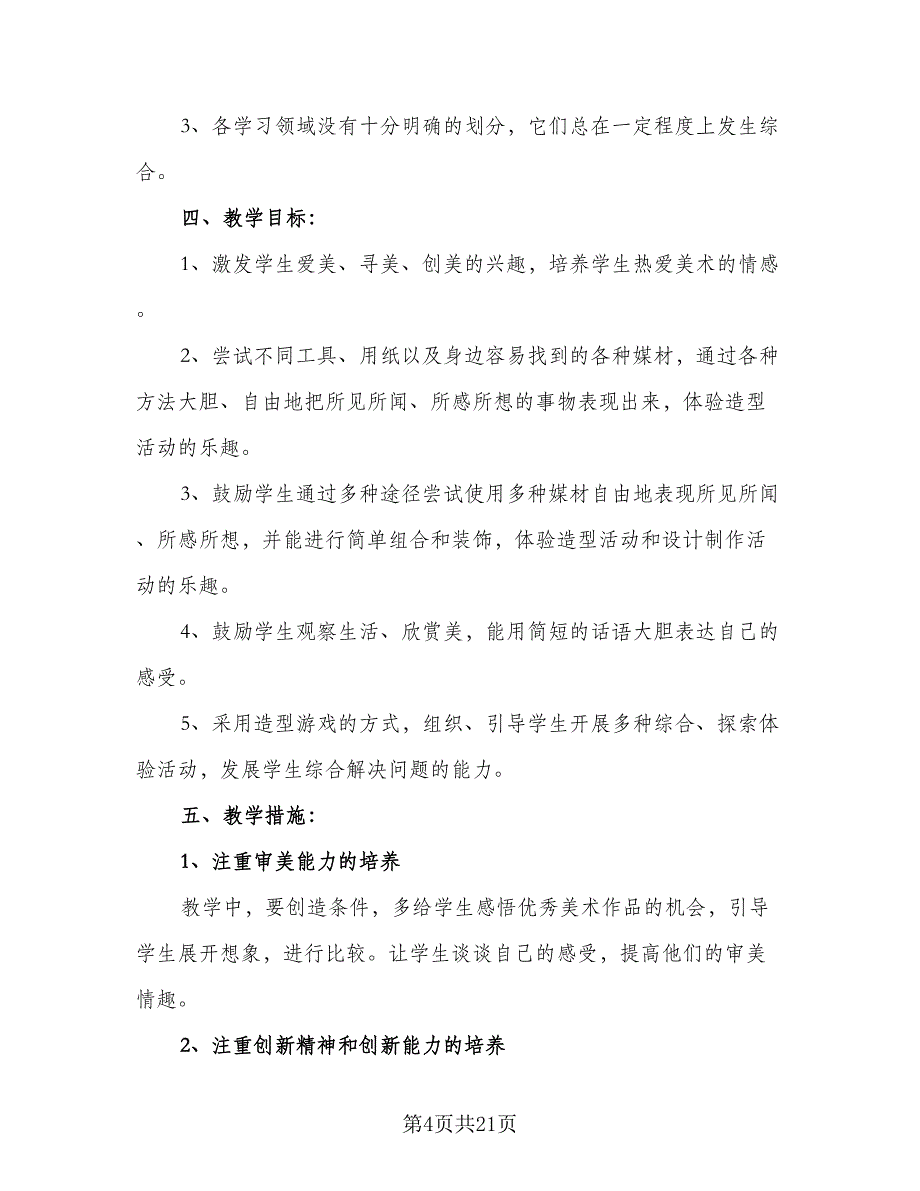 3、各学习领域没有十分明确的划分，它们总在一定程度上发生综
合。
四、教学目标：
1、激发学生爱美、寻美、创美的兴趣，培养学生热爱美术的情感
。
2、尝试不同工具、用纸以及身边容易找到的各种媒材，通过各种
方法大胆、自由地把所见所闻、所感所想的事物表现出来，体验造型
活动的乐趣。
3、鼓励学生通过多种途径尝试使用多种媒材自由地表现所见所闻
、所感所想，并能进行简单组合和装饰，体验造型活动和设计制作活
动的乐趣。
4、鼓励学生观察生活、欣赏美，能用简短的话语大胆表达自己的
感受。
5、采用造型游戏的方式，组织、引导学生开展多种综合、探索体
验活动，发展学生综合解决问题的能力。
五、教学措施：
1、注重审美能力的培养
教学中，要创造条件，多给学生感悟优秀美术作品的机会，引导
学生展开想象，进行比较。让学生谈谈自己的感受，提高他们的审美
情趣。
2、注重创新精神和创新能力的培养
第4页共21页